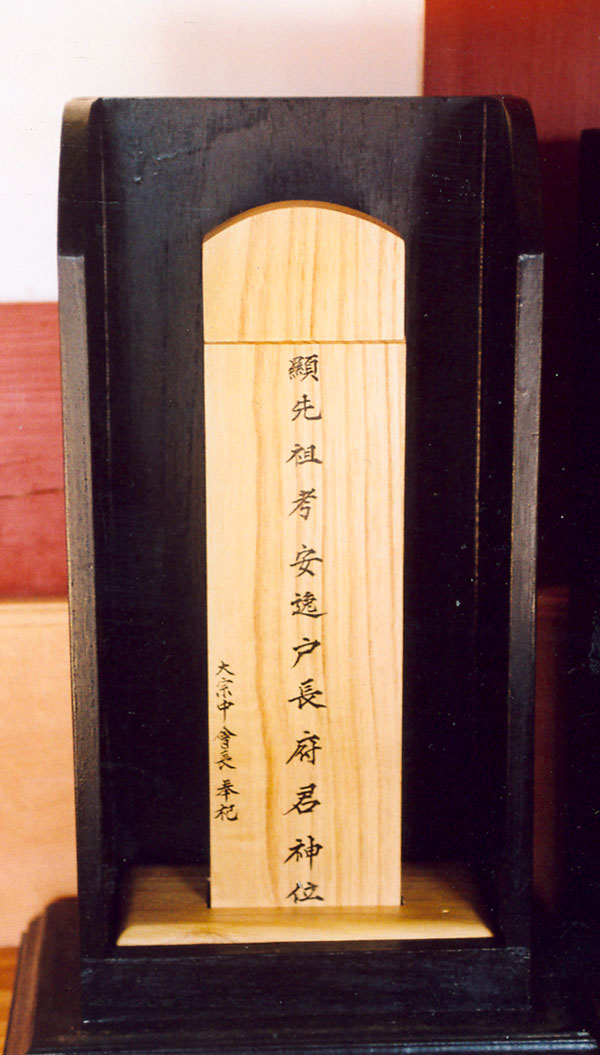 顯先祖考安逸户長府君神位
大宗中會長奉祀